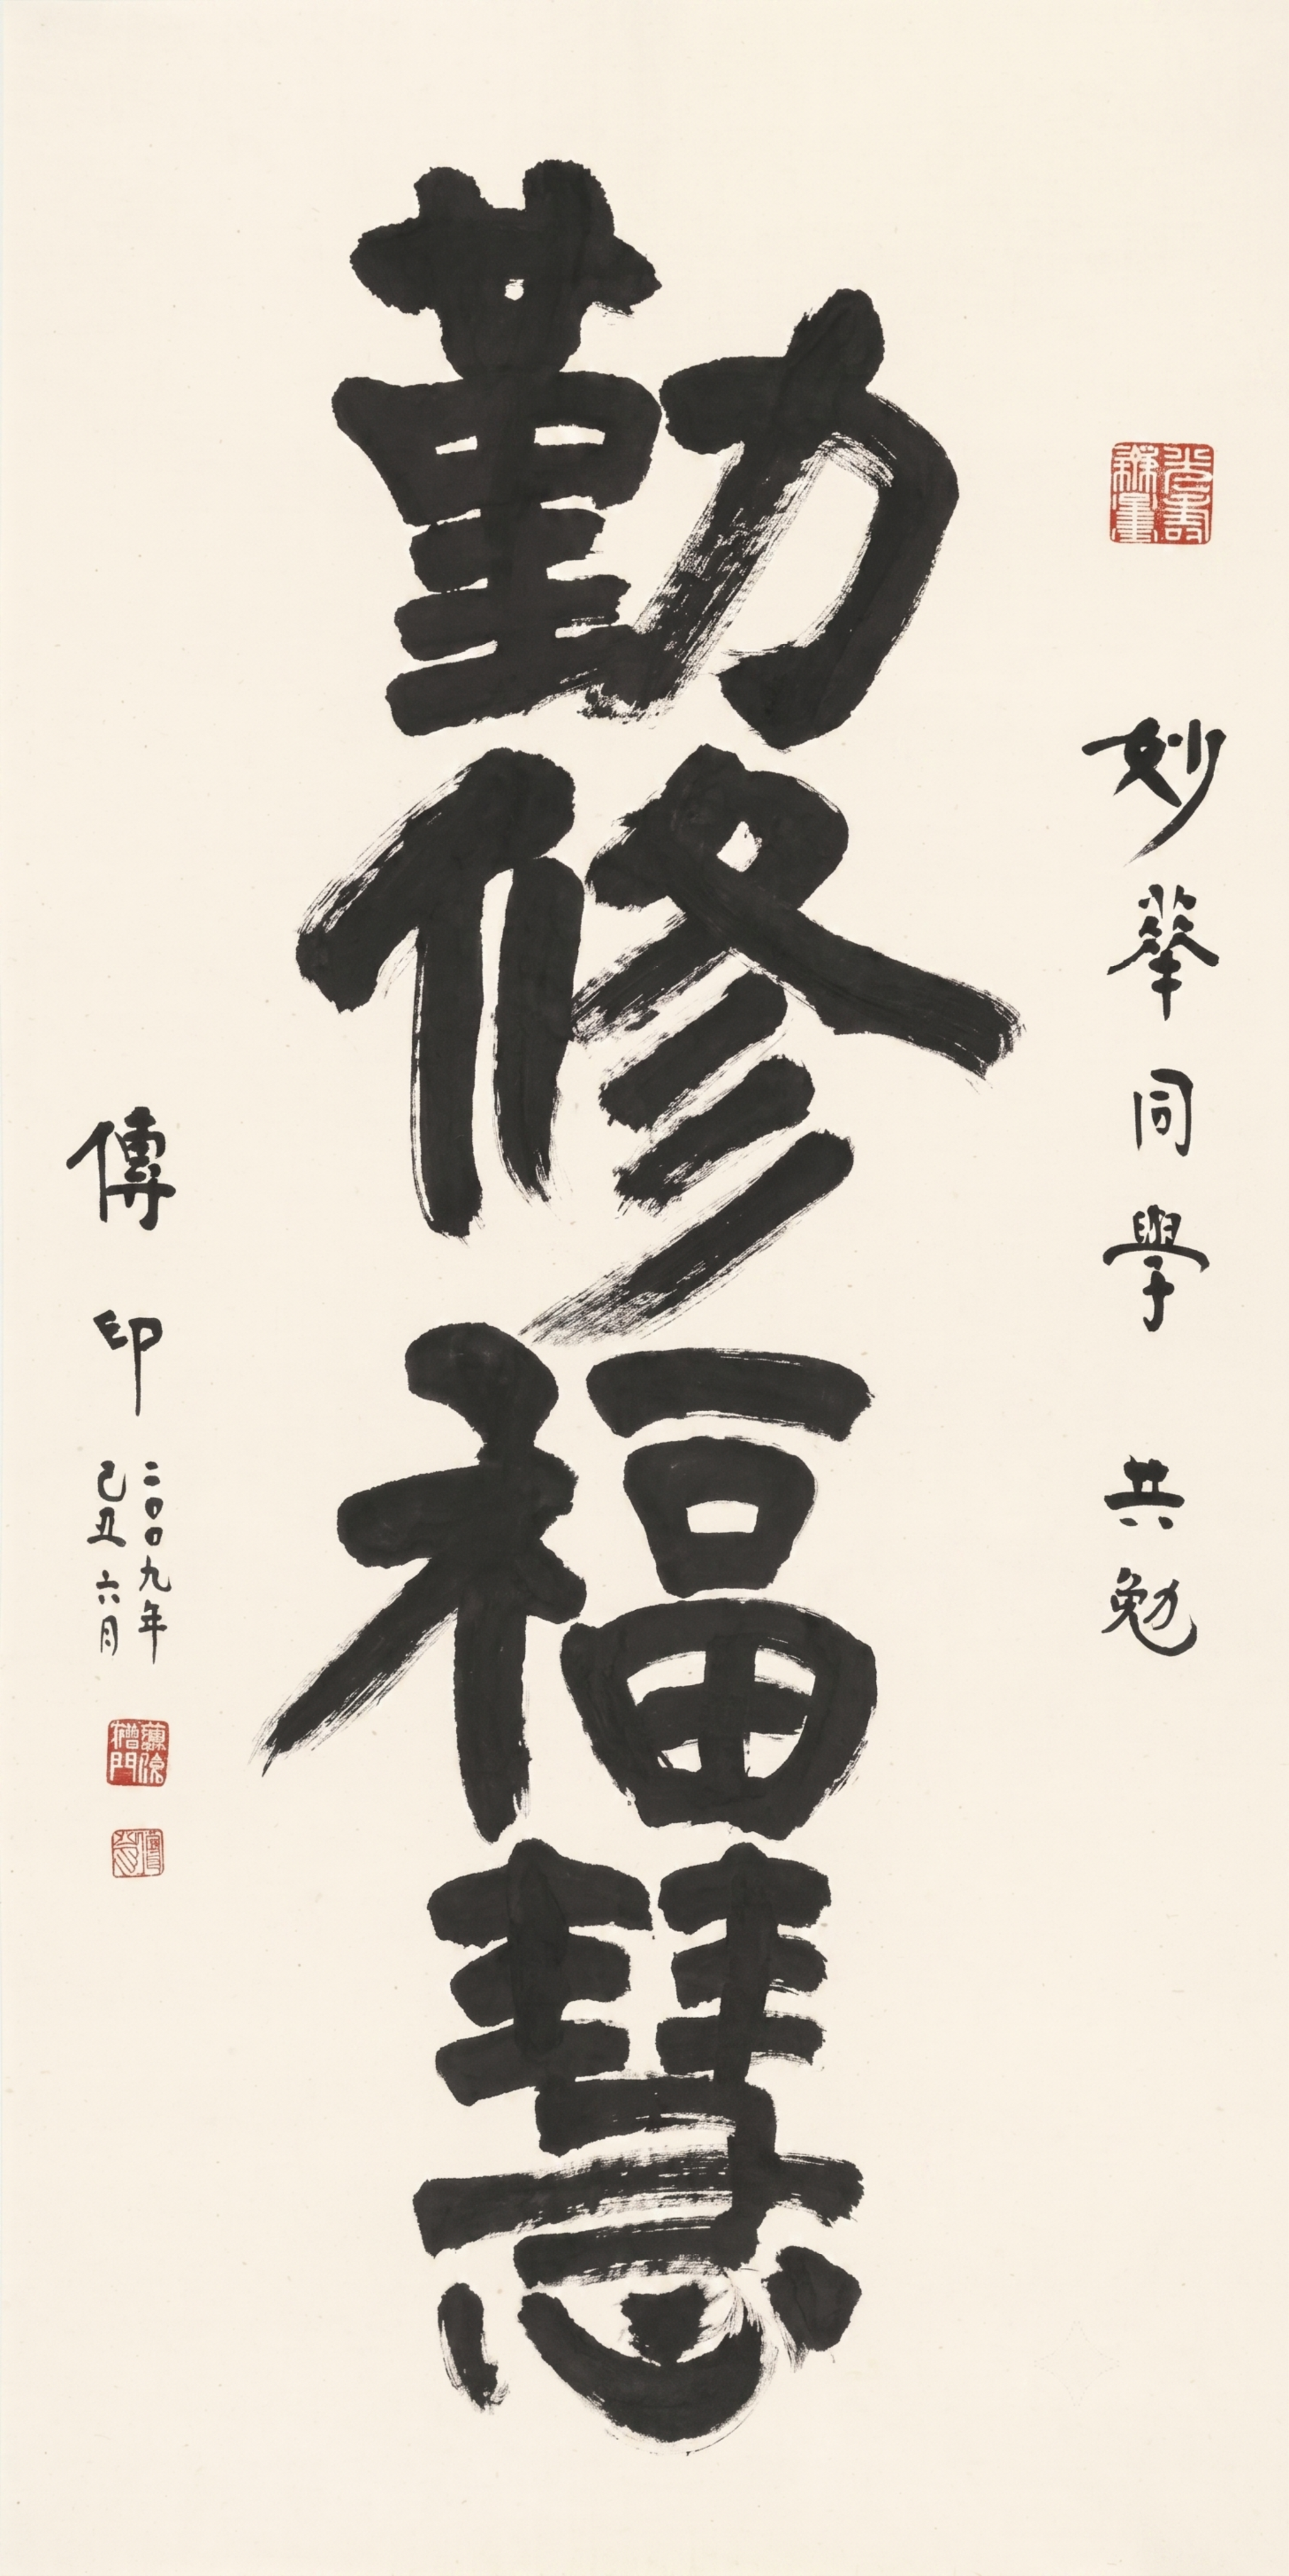 妙華同學 共勉
勤修福慧
傳印
二〇〇九年
己丑 六月